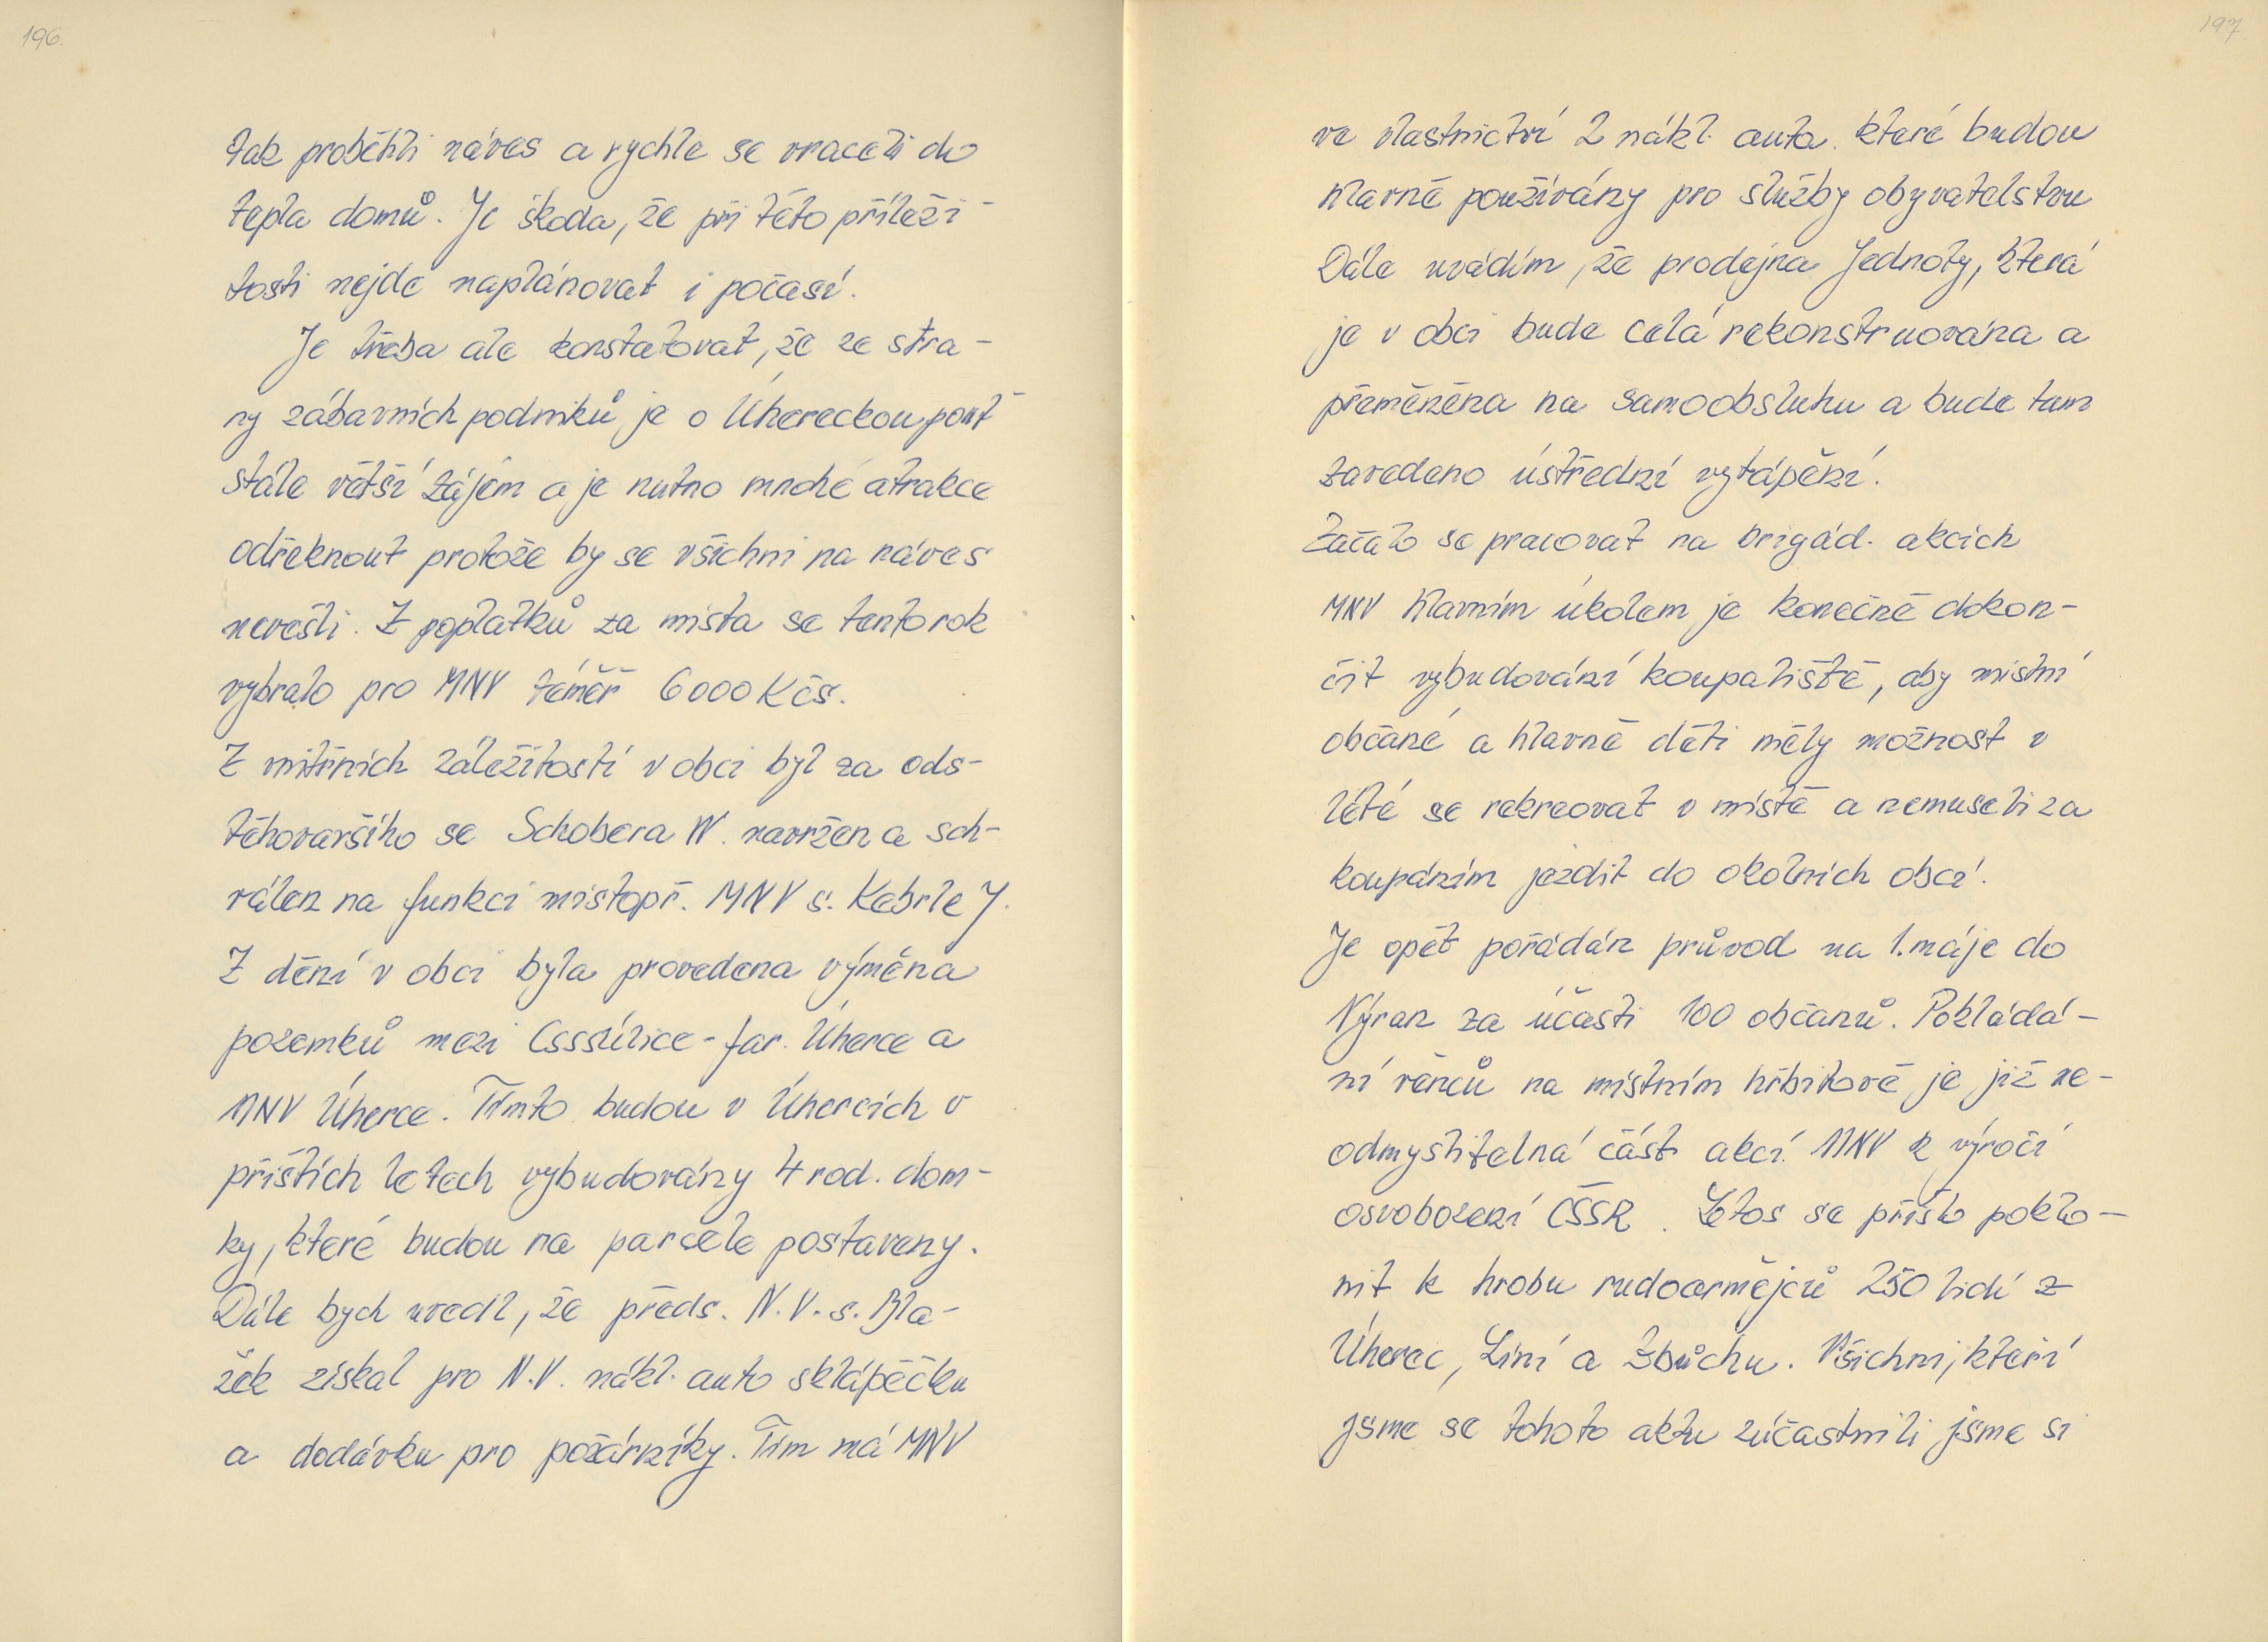 196.
tak proběhli náves a rychle se vraceli do
tepla domů. Je škoda, že při této příleži-
tosti nejde naplánovat i počasí.
Je třeba ale konstatovat, že ze stra-
ny zábavních podniků je o Úhereckou pouť
stále větší zájem a je nutno mnohé atrakce
odřeknout protože by se všichni na náves
nevešli. Z poplatků za místa se tento rok
vybralo pro MNV téměř 6000 Kčs.
Z vnitřních záležitostí v obci byl za ods-
těhovavšího se Schobera W. navržen a sch-
válen na funkci místopř. MNV s. Kebrle J.
Z dění v obci byla provedena výměna
pozemků mezi Csssúlice - far. Úherce a
MNV Úherce. Tímto budou v Úhercích v
příštích letech vybudovány 4 rod. dom-
ky, které budou na parcele postaveny.
Dále bych uvedl, že předs. N.V. s. Bla-
žek získal pro N.V. nákl. auto sklápěčku
a dodávku pro požárníky. Tím má MNV
197
ve vlastnictví 2 nákl. auta. které budou
hlavně používány pro služby obyvatelstvu
Dále uvádím, že prodejna Jednoty, která
je v obci bude celá rekonstruována a
přeměněna na samoobsluhu a bude tam
zavedeno ústřední vytápění.
Začalo se pracovat na brigád. akcích
MNV hlavním úkolem je konečně dokon-
čit vybudování koupaliště, aby místní
občané a hlavně děti měly možnost v
létě se rekreovat v místě a nemuseli za
koupáním jezdit do okolních obcí.
Je opět pořádán průvod na 1. máje do
Nýřan za účasti 100 občanů. Pokládá-
ní věnců na místním hřbitově je již ne-
odmyslitelná část akcí MNV k výročí
osvobození ČSSR. Letos se přišlo poklo-
nit k hrobu rudoarmějců 250 lidí z
Úherec, Líní a Zbůchu. Všichni, kteří
jsme se tohoto aktu zúčastnili jsme si